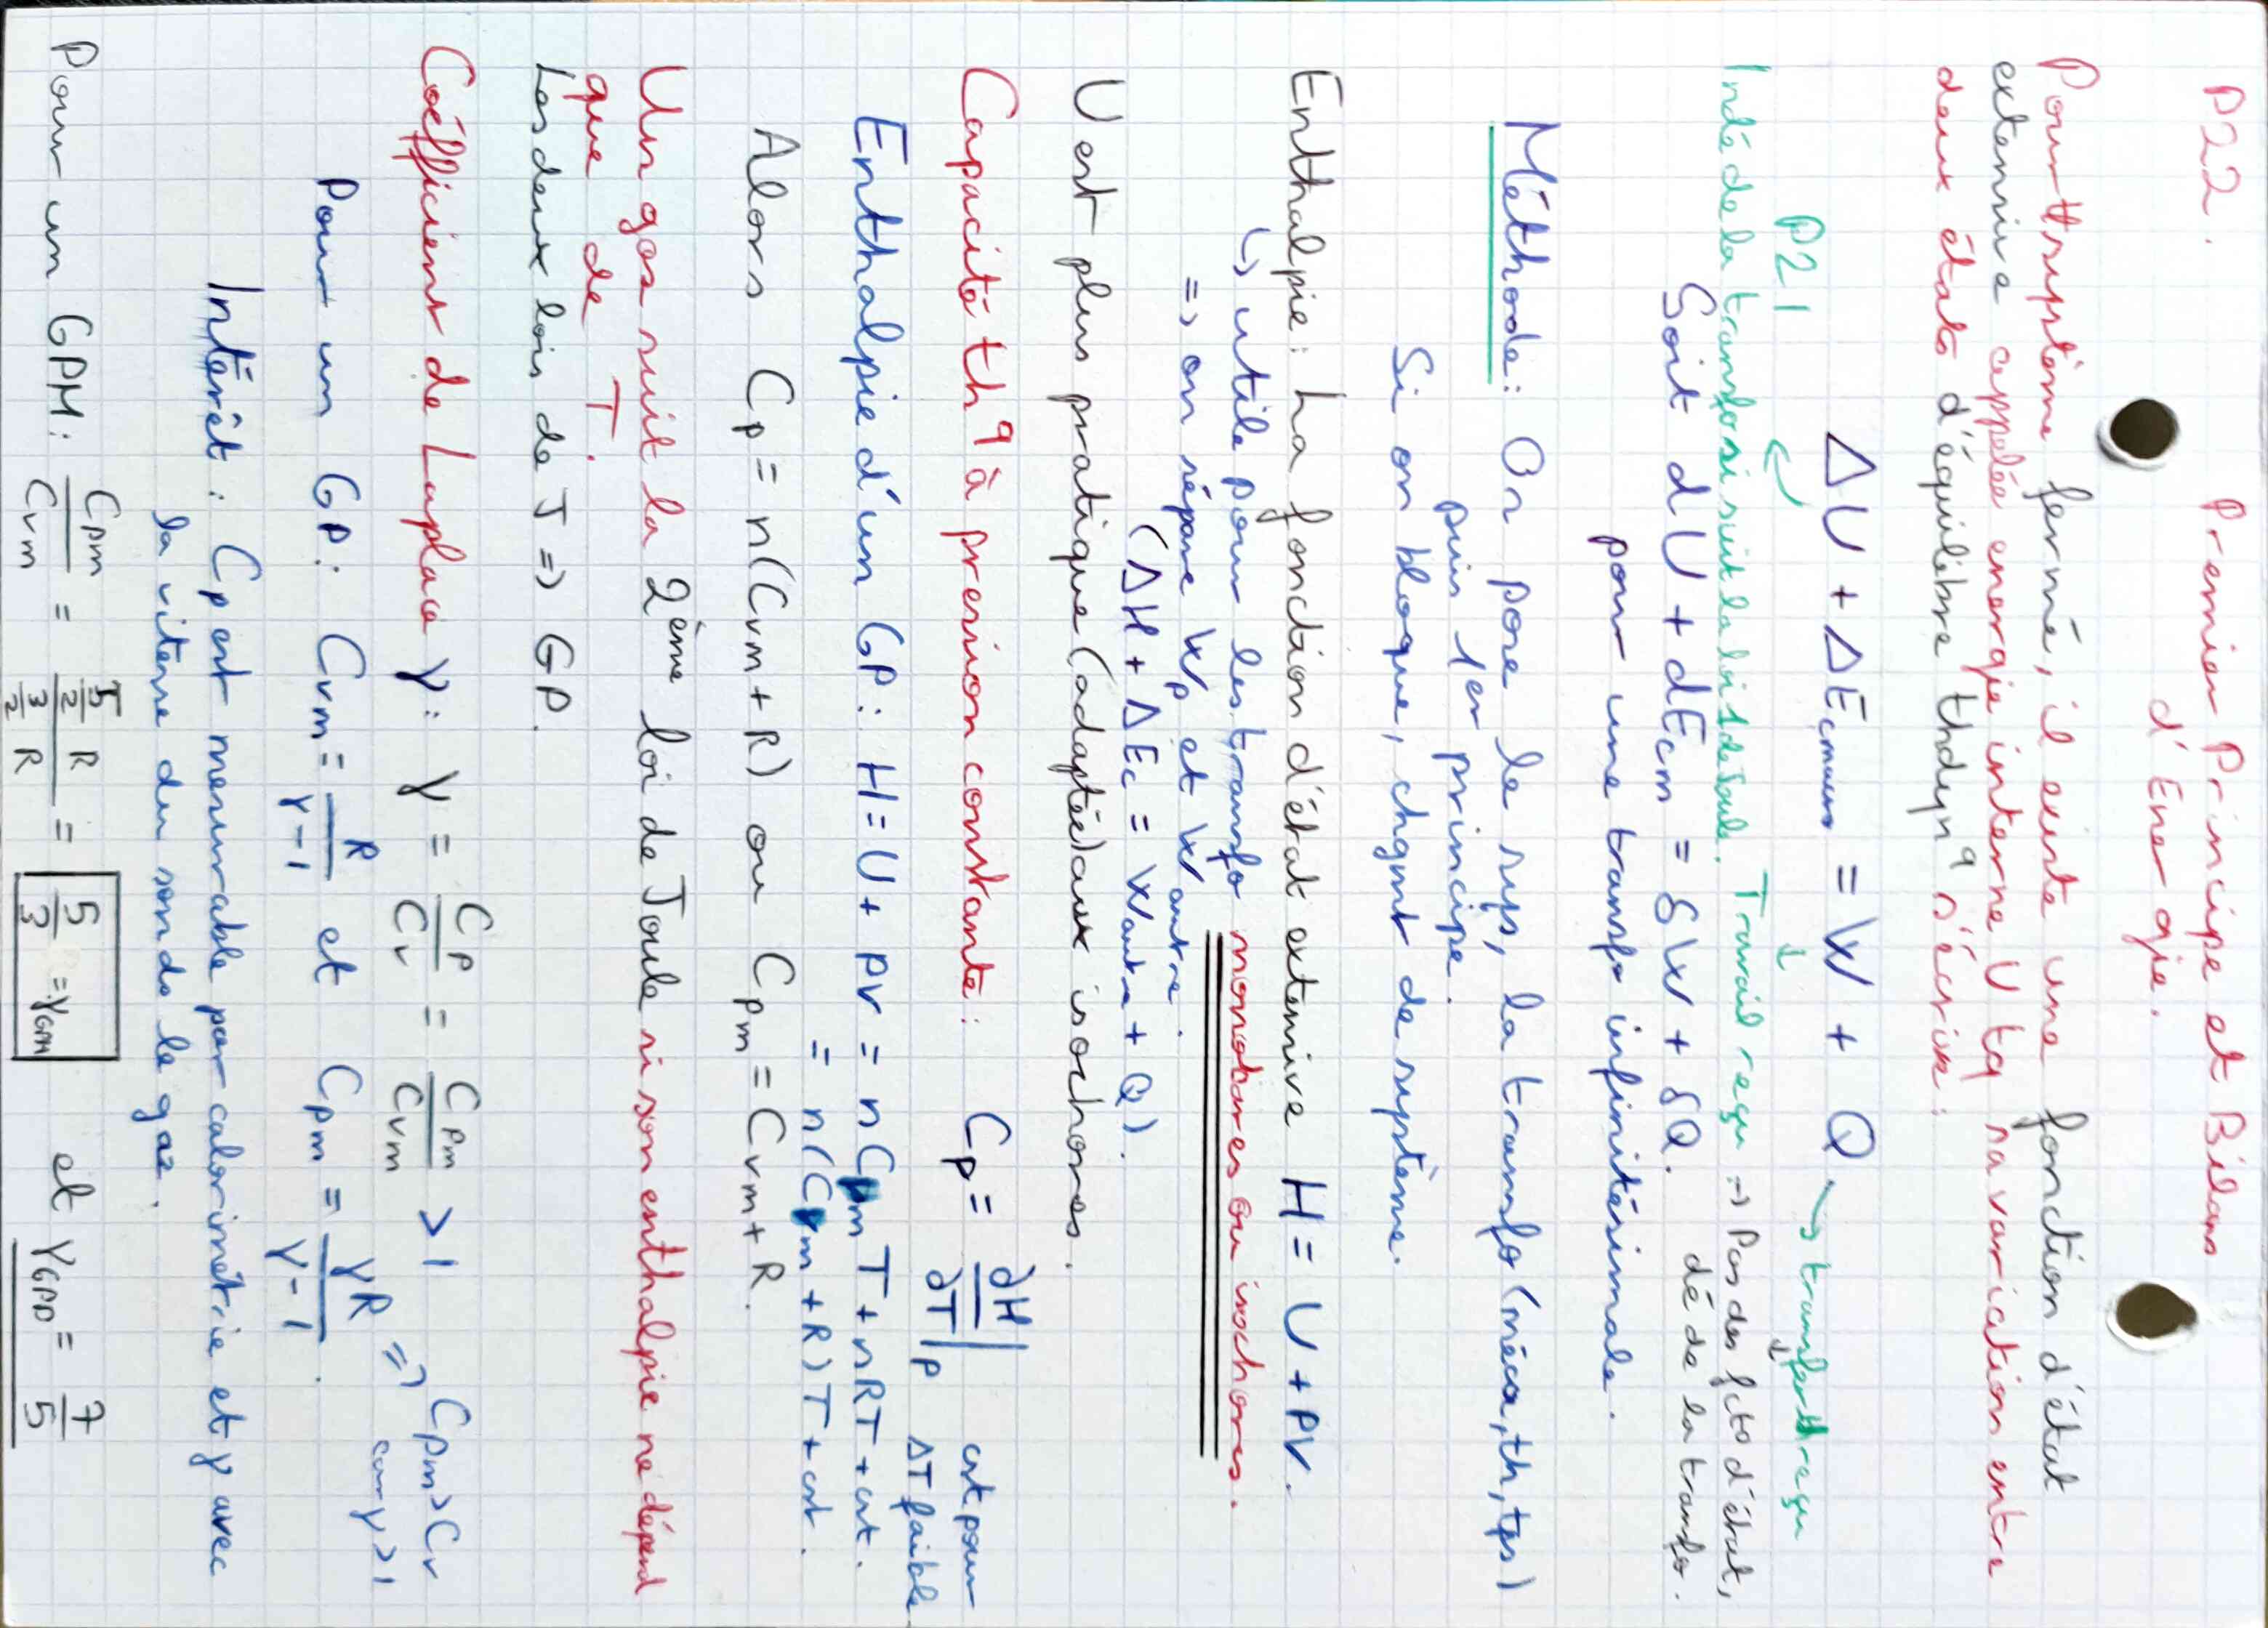 P22. Premier Principe et Bilans
d'Energie.
Pour tt système fermé, il existe une fonction d'état
extensive appelée energie interne U tq sa variation entre
deux états d'équilibre thdynq s'écrive :
ΔU + ΔEcmacro = W + Q → transfert th reçu
P21
Indé de la transfo si suit la loi 1 de Joule. Travail reçu => Pas des fcts d'état,
dé de la transfo.
Soit dU + dEcm = δW + δQ.
pour une transfo infinitésimale.
Méthode : On pose le sys, la transfo (méca, th, tps)
puis 1er principe.
Si on bloque, chgmt de système.
Enthalpie : La fonction d'état extensive H = U + PV.
↳ utile pour les transfo monobares ou isochores.
=> on sépare Wp et W autre.
(ΔH + ΔEc = Wautre + Q).
U est plus pratique (adaptée) aux isochores.
Capacité thq à pression constante : Cp = ∂H/∂T|P cst pour
ΔT faible
Enthalpie d'un GP : H = U + PV = nCpmT + nRT + cst.
= n(Cvm + R)T + cst.
Alors Cp = n(Cvm + R) ou Cpm = Cvm + R.
Un gas suit la 2ème loi de Joule si son enthalpie ne dépend
que de T.
Les deux lois de J => GP.
Coéfficient de Laplace γ : γ = Cp/Cv = Cpm/Cvm > 1
Pour un GP : Cvm = R/γ-1 et Cpm = γR/γ-1 . => Cpm > Cv
car γ > 1
Intérêt : Cp est mesurable par calorimétrie et γ avec
la vitesse du son ds le gaz.
Pour un GPM : Cpm/Cvm = 5/2 R / 3/2 R = 5/3 = γGPM et γGPD = 7/5